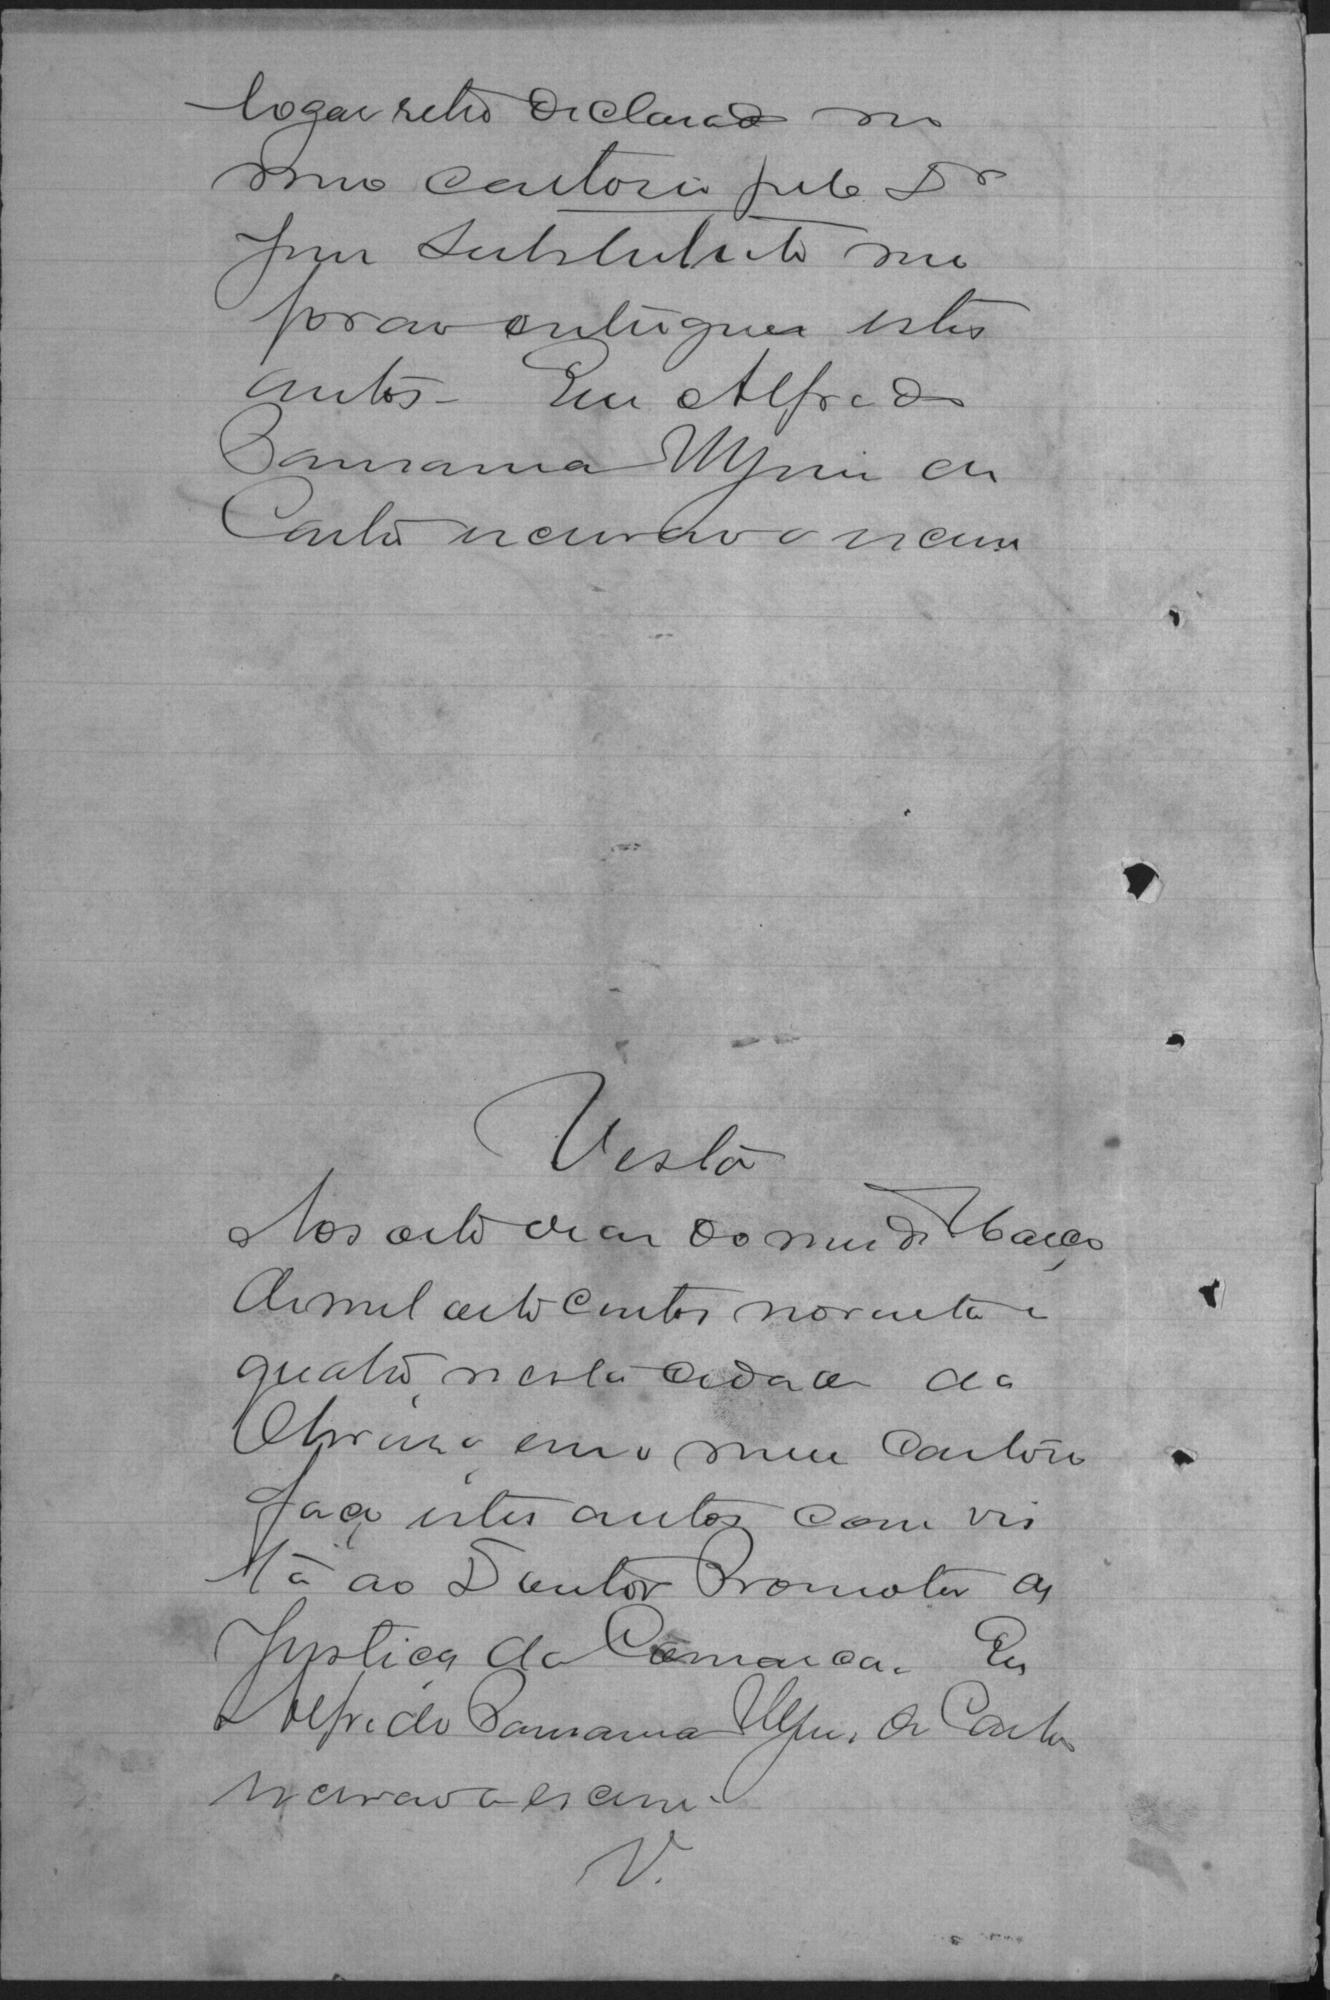 logar retro declarado no
meo cartorio pelo Dr
Juiz Substituto me
forão entregues estes
autos - Eu Alfredo
de
Couto escrivão o escrevi
Vista
Aos oito dias do mez de Março
de mil oito centos noventa e
quatro, nesta cidade da
em o meu Cartorio
faço estes autos com vis
ta ao Doutor Promotor de
Justiça da Comarca. Eu
Alfredo de Couto
escrivão o escrevi.
V.